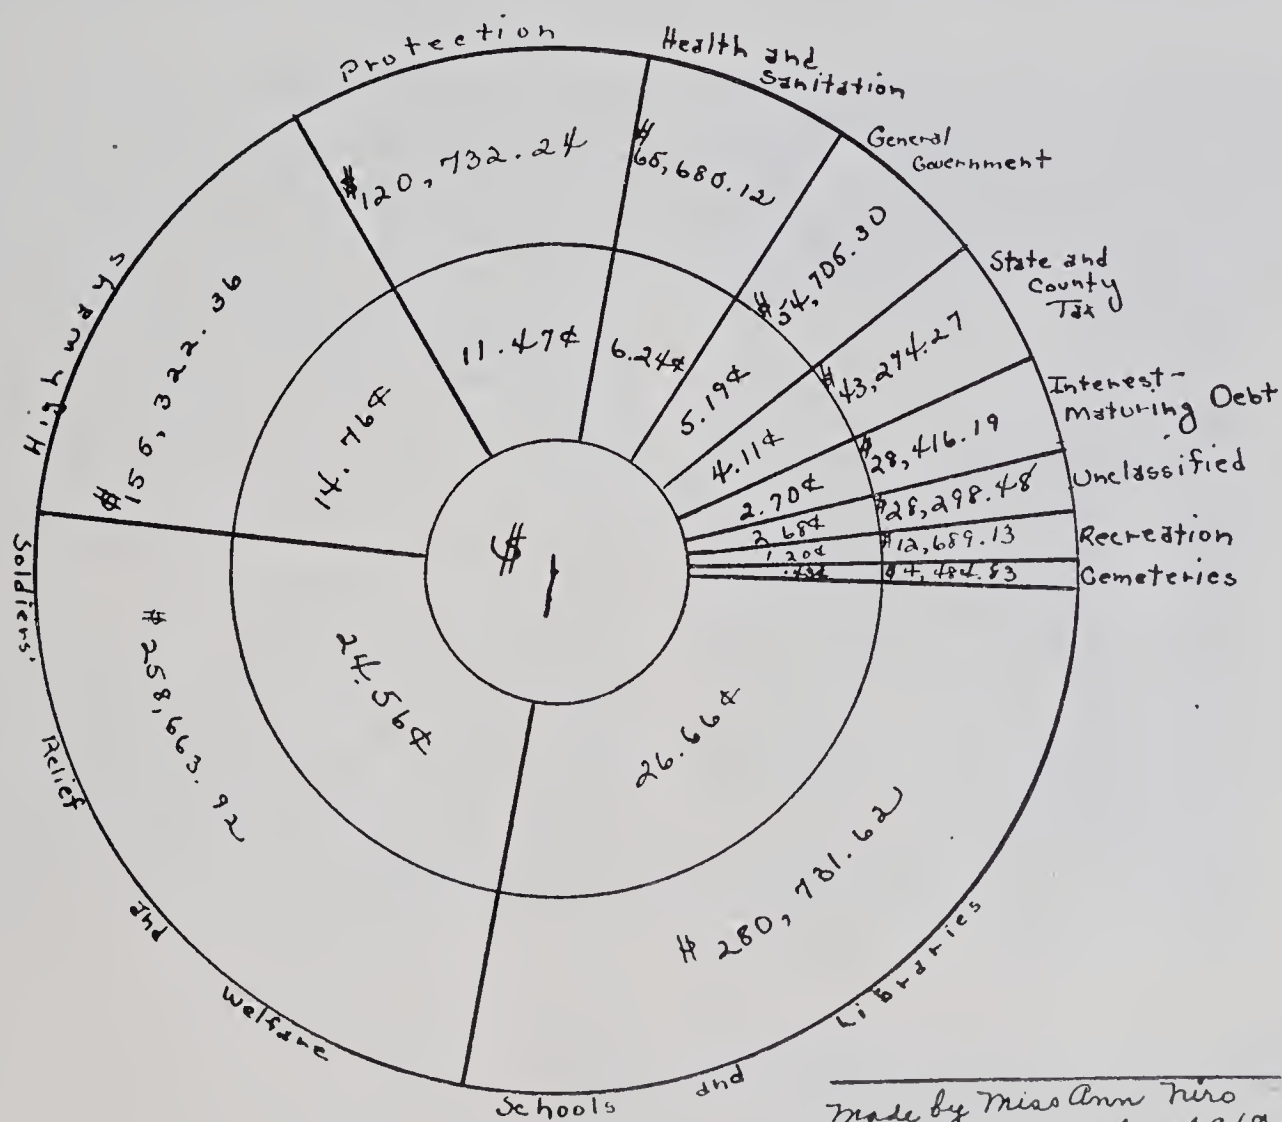 Protection
$120,732.24
11.47¢
Health and
Sanitation
$65,680.12
6.24¢
General
Government
$54,706.30
5.19¢
State and
County
Tax
$43,274.27
4.11¢
Interest-
Maturing Debt
$28,416.19
2.70¢
Unclassified
$28,298.48
2.68¢
Recreation
$12,689.13
1.20¢
Cemeteries
$4,484.83
.43¢
Schools and Libraries
$280,731.62
26.66¢
Soldiers' Relief and Welfare
$258,663.92
24.56¢
Highways
$155,322.36
14.76¢
$1
Made by Miss Ann Niro